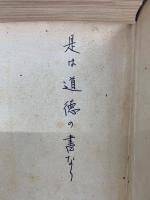 是は道徳の書なり